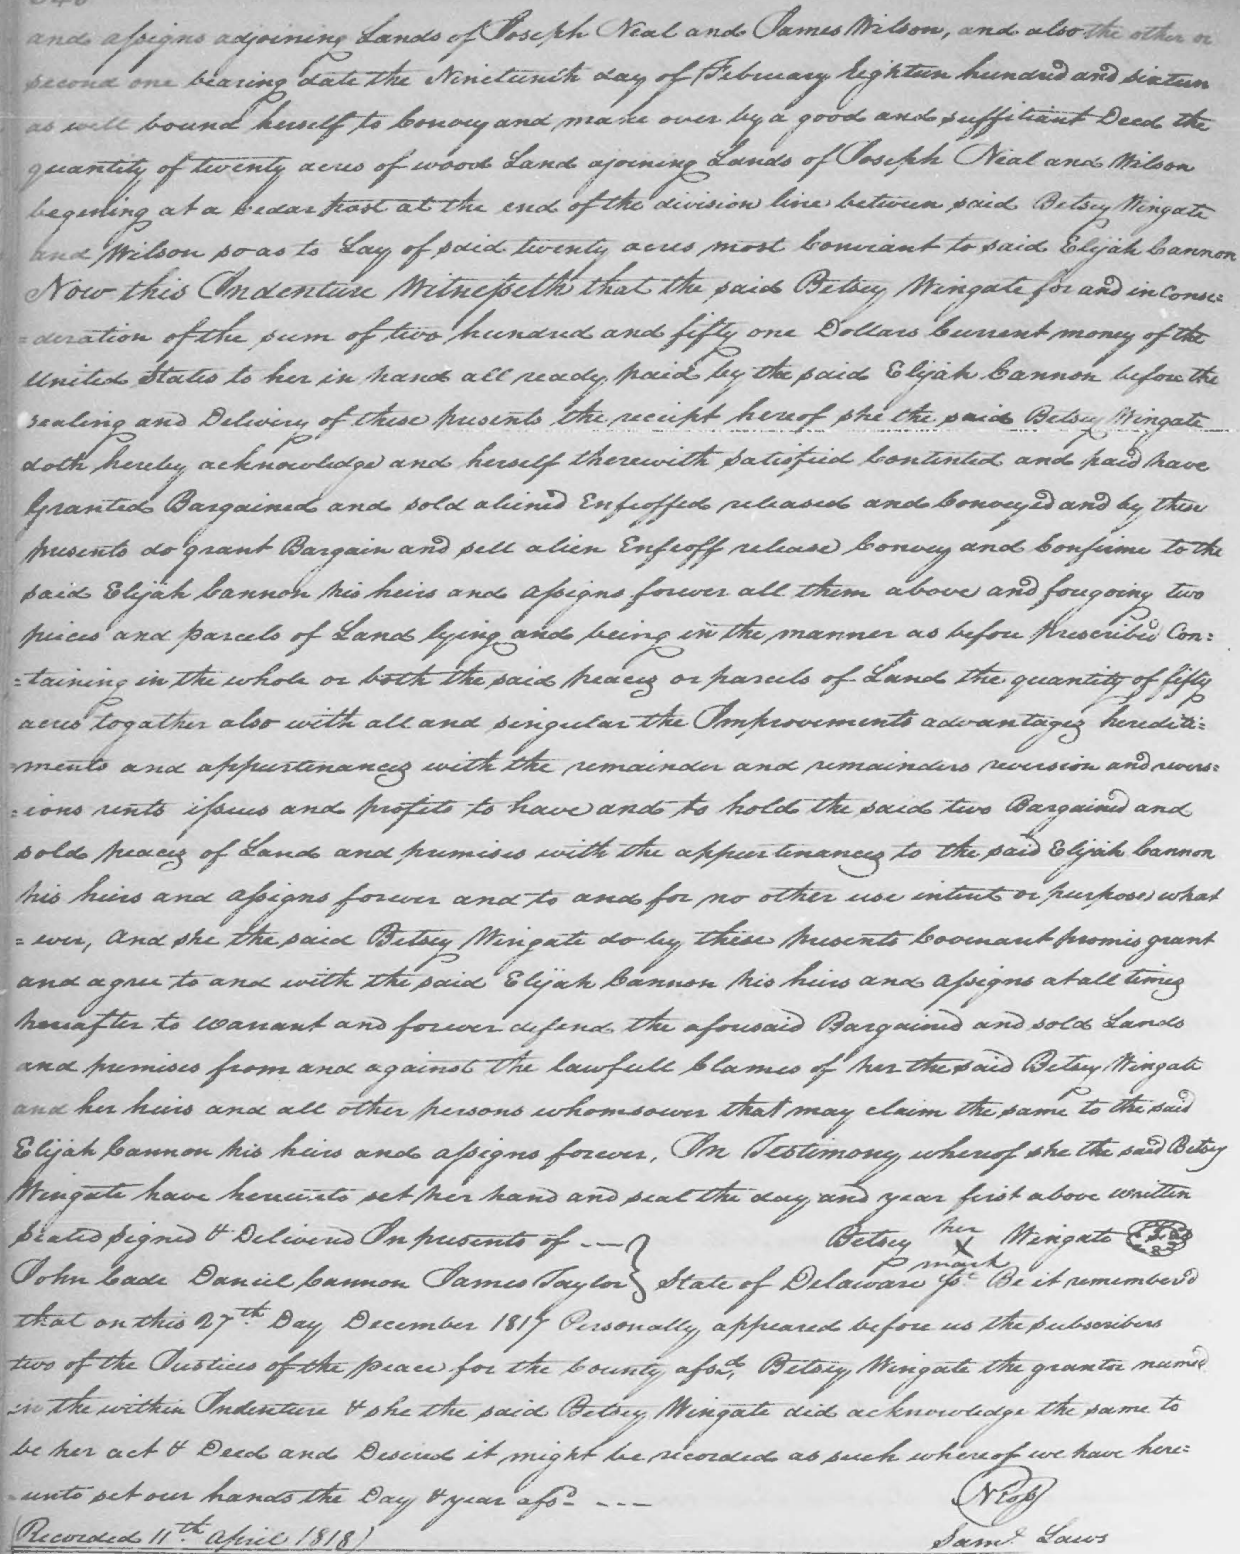 and assigns adjoining Lands of Joseph Neal and James Wilson, and also the other or
second one bearing date the Nineteenth day of February Eighteen hundred and sixteen
as well bound herself to Convey and make over by a good and suffitiant Deed the
quantity of twenty acres of wood Land ajoining Lands of Joseph Neal and Wilson
begening at a cedar Post at the end of the division line between said Betsey Wingate
and Wilson so as to Lay of said twenty acres most Conviant to said Elijah Cannon
Now this Indenture Witnesseth that the said Betsey Wingate for and in Conse=
=deration of the sum of two hundred and fifty one Dollars Current money of the
United States to her in hand all ready paid by the said Elijah Cannon before the
sealing and Delivery of these presents the receipt hereof she the said Betsey Wingate
doth hereby acknowledge and herself therewith satisfied Contented and paid have
Granted Bargained and sold aliened Enfeoffed released and Conveyed and by these
presents do grant Bargain and sell alien Enfeoff release Convey and Confirme to the
said Elijah Cannon his heirs and assigns forever all them above and foregoing two
peices and parcels of Land lying and being in the manner as before Prescribed Con=
=taining in the whole or both the said peaces or parcels of Land the quantity of fifty
acres togather also with all and singular the Improvements advantages heredita=
=ments and appurtenances with the remainder and remainders reversion and revers=
=ions rents issues and profits to have and to hold the said two Bargained and
sold peaces of Land and premises with the appurtenances to the said Elijah Cannon
his heirs and assigns forever and to and for no other use intent or purpose what
=ever, and she the said Betsey Wingate do by these presents Covenant promis grant
and agree to and with the said Elijah Cannon his heirs and assigns at all times
hereafter to warrant and forever defend the aforesaid Bargained and sold Lands
and premises from and against the lawfull Clames of her the said Betsey Wingate
and her heirs and all other persons whomsoever that may claim the same to the said
Elijah Cannon his heirs and assigns forever, In Testimony whereof she the said Betsey
Wingate have hereunto set her hand and seal the day and year first above written
Sealed signed & Delivered In presents of --- } Betsey her X mark Wingate
John Cade Daniel Cannon James Taylor } State of Delaware Ss. Be it remembered
that on this 27th Day December 1817 Personally appeared before us the subscribers
two of the Justices of the peace for the County afsd, Betsey Wingate the grantor named
in the within Indenture & she the said Betsey Wingate did acknowledge the same to
be her act & Deed and Desired it might be recorded as such whereof we have here=
=unto set our hands the Day & year afsd ---
Saml. Laws
(Recorded 11th April 1818)